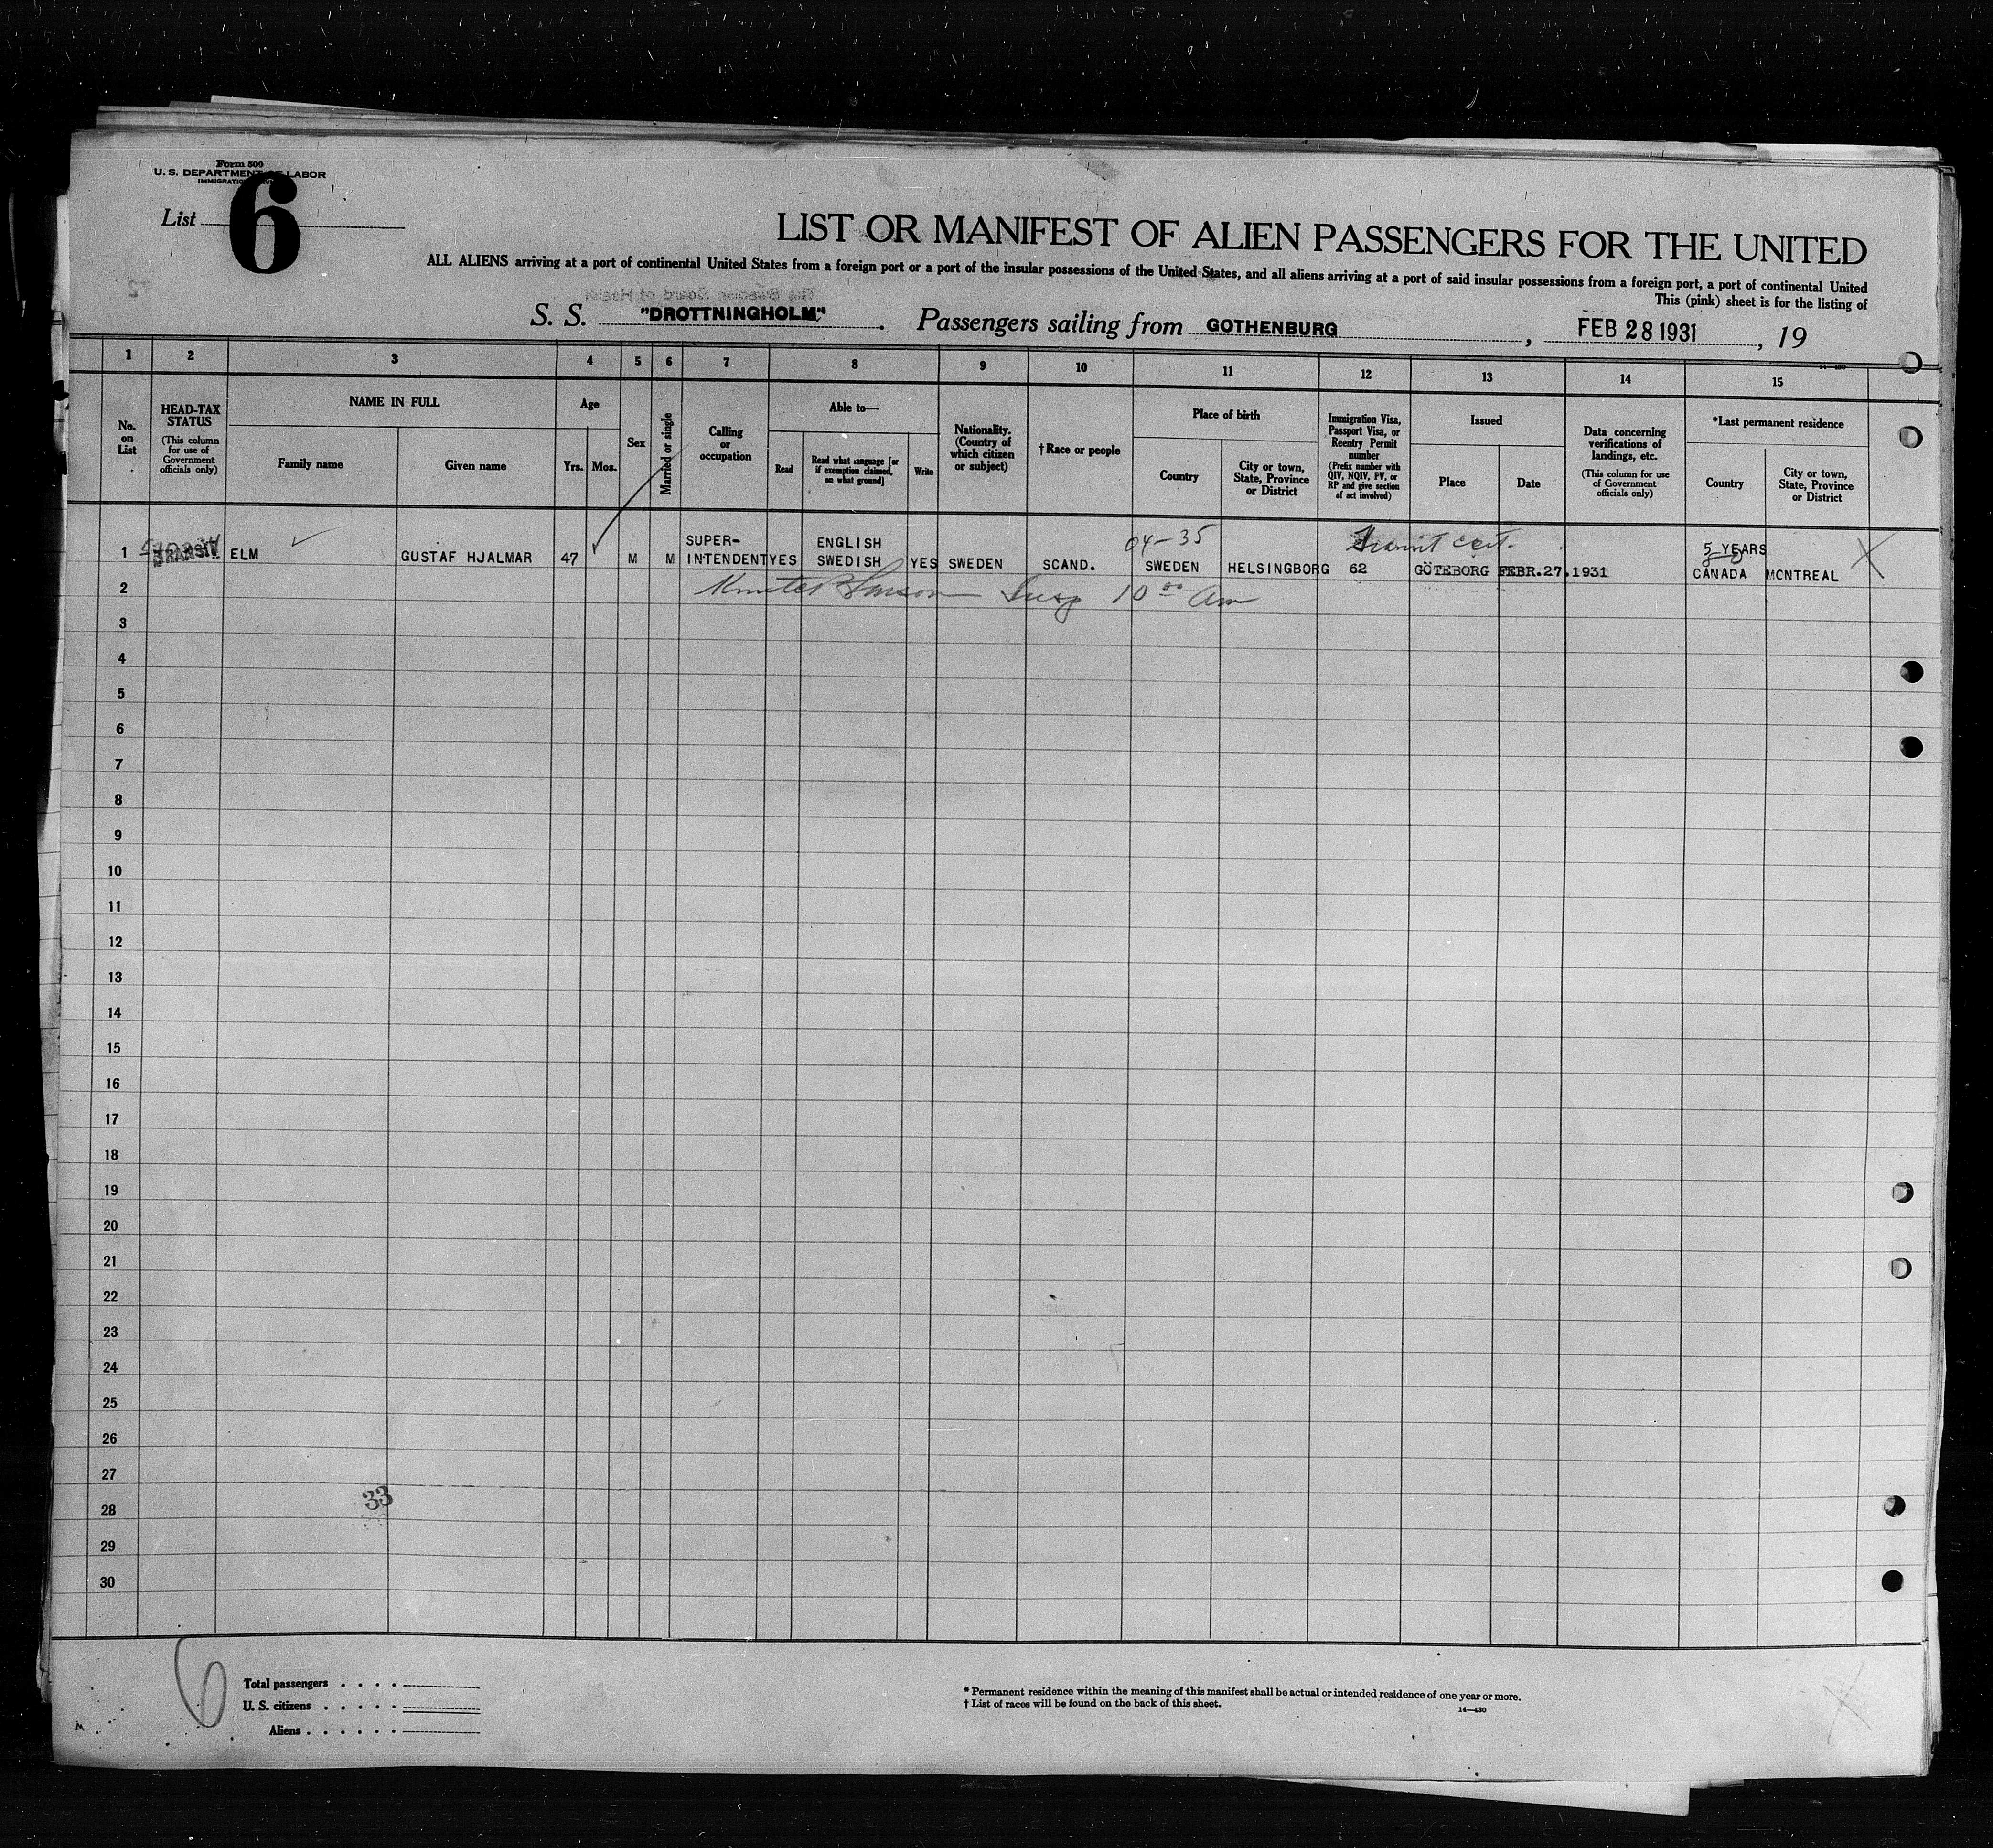 Form 500
U. S. DEPARTMENT OF LABOR
List 6
LIST OR MANIFEST OF ALIEN PASSENGERS FOR THE UNITED
ALL ALIENS arriving at a port of continental United States from a foreign port or a port of the insular possessions of the United States, and all aliens arriving at a port of said insular possessions from a foreign port, a port of continental United
This (pink) sheet is for the listing of
S. S. "DROTTNINGHOLM". Passengers sailing from GOTHENBURG, FEB 28 1931, 19
1 2 3 4 5 6 7 8 9 10 11 12 13 14 15
No. on List
HEAD-TAX STATUS
(This column for use of Government officials only)
NAME IN FULL
Family name
Given name
Age
Yrs. Mos.
Sex
Married or single
Calling or occupation
Able to—
Read
Read what language [or if exemption claimed, on what ground]
Write
Nationality. (Country of which citizen or subject)
†Race or people
Place of birth
Country
City or town, State, Province or District
Immigration Visa, Passport Visa, or Reentry Permit number
(Prefix number with QIV, NQIV, PV, or RP and give section of act involved)
Issued
Place
Date
Data concerning verifications of landings, etc.
(This column for use of Government officials only)
*Last permanent residence
Country
City or town, State, Province or District
04-35 Transit cert.
1 TRANSIT ELM GUSTAF HJALMAR 47 M M SUPER-INTENDENT YES ENGLISH SWEDISH YES SWEDEN SCAND. SWEDEN HELSINGBORG 62 GÖTEBORG FEBR.27.1931 5 YEARS CANADA MONTREAL
2 10 00 Am
3
4
5
6
7
8
9
10
11
12
13
14
15
16
17
18
19
20
21
22
23
24
25
26
27
33
28
29
30
6
Total passengers . . . .
U. S. citizens . . . . .
Aliens . . . . . .
* Permanent residence within the meaning of this manifest shall be actual or intended residence of one year or more.
† List of races will be found on the back of this sheet.
14—430